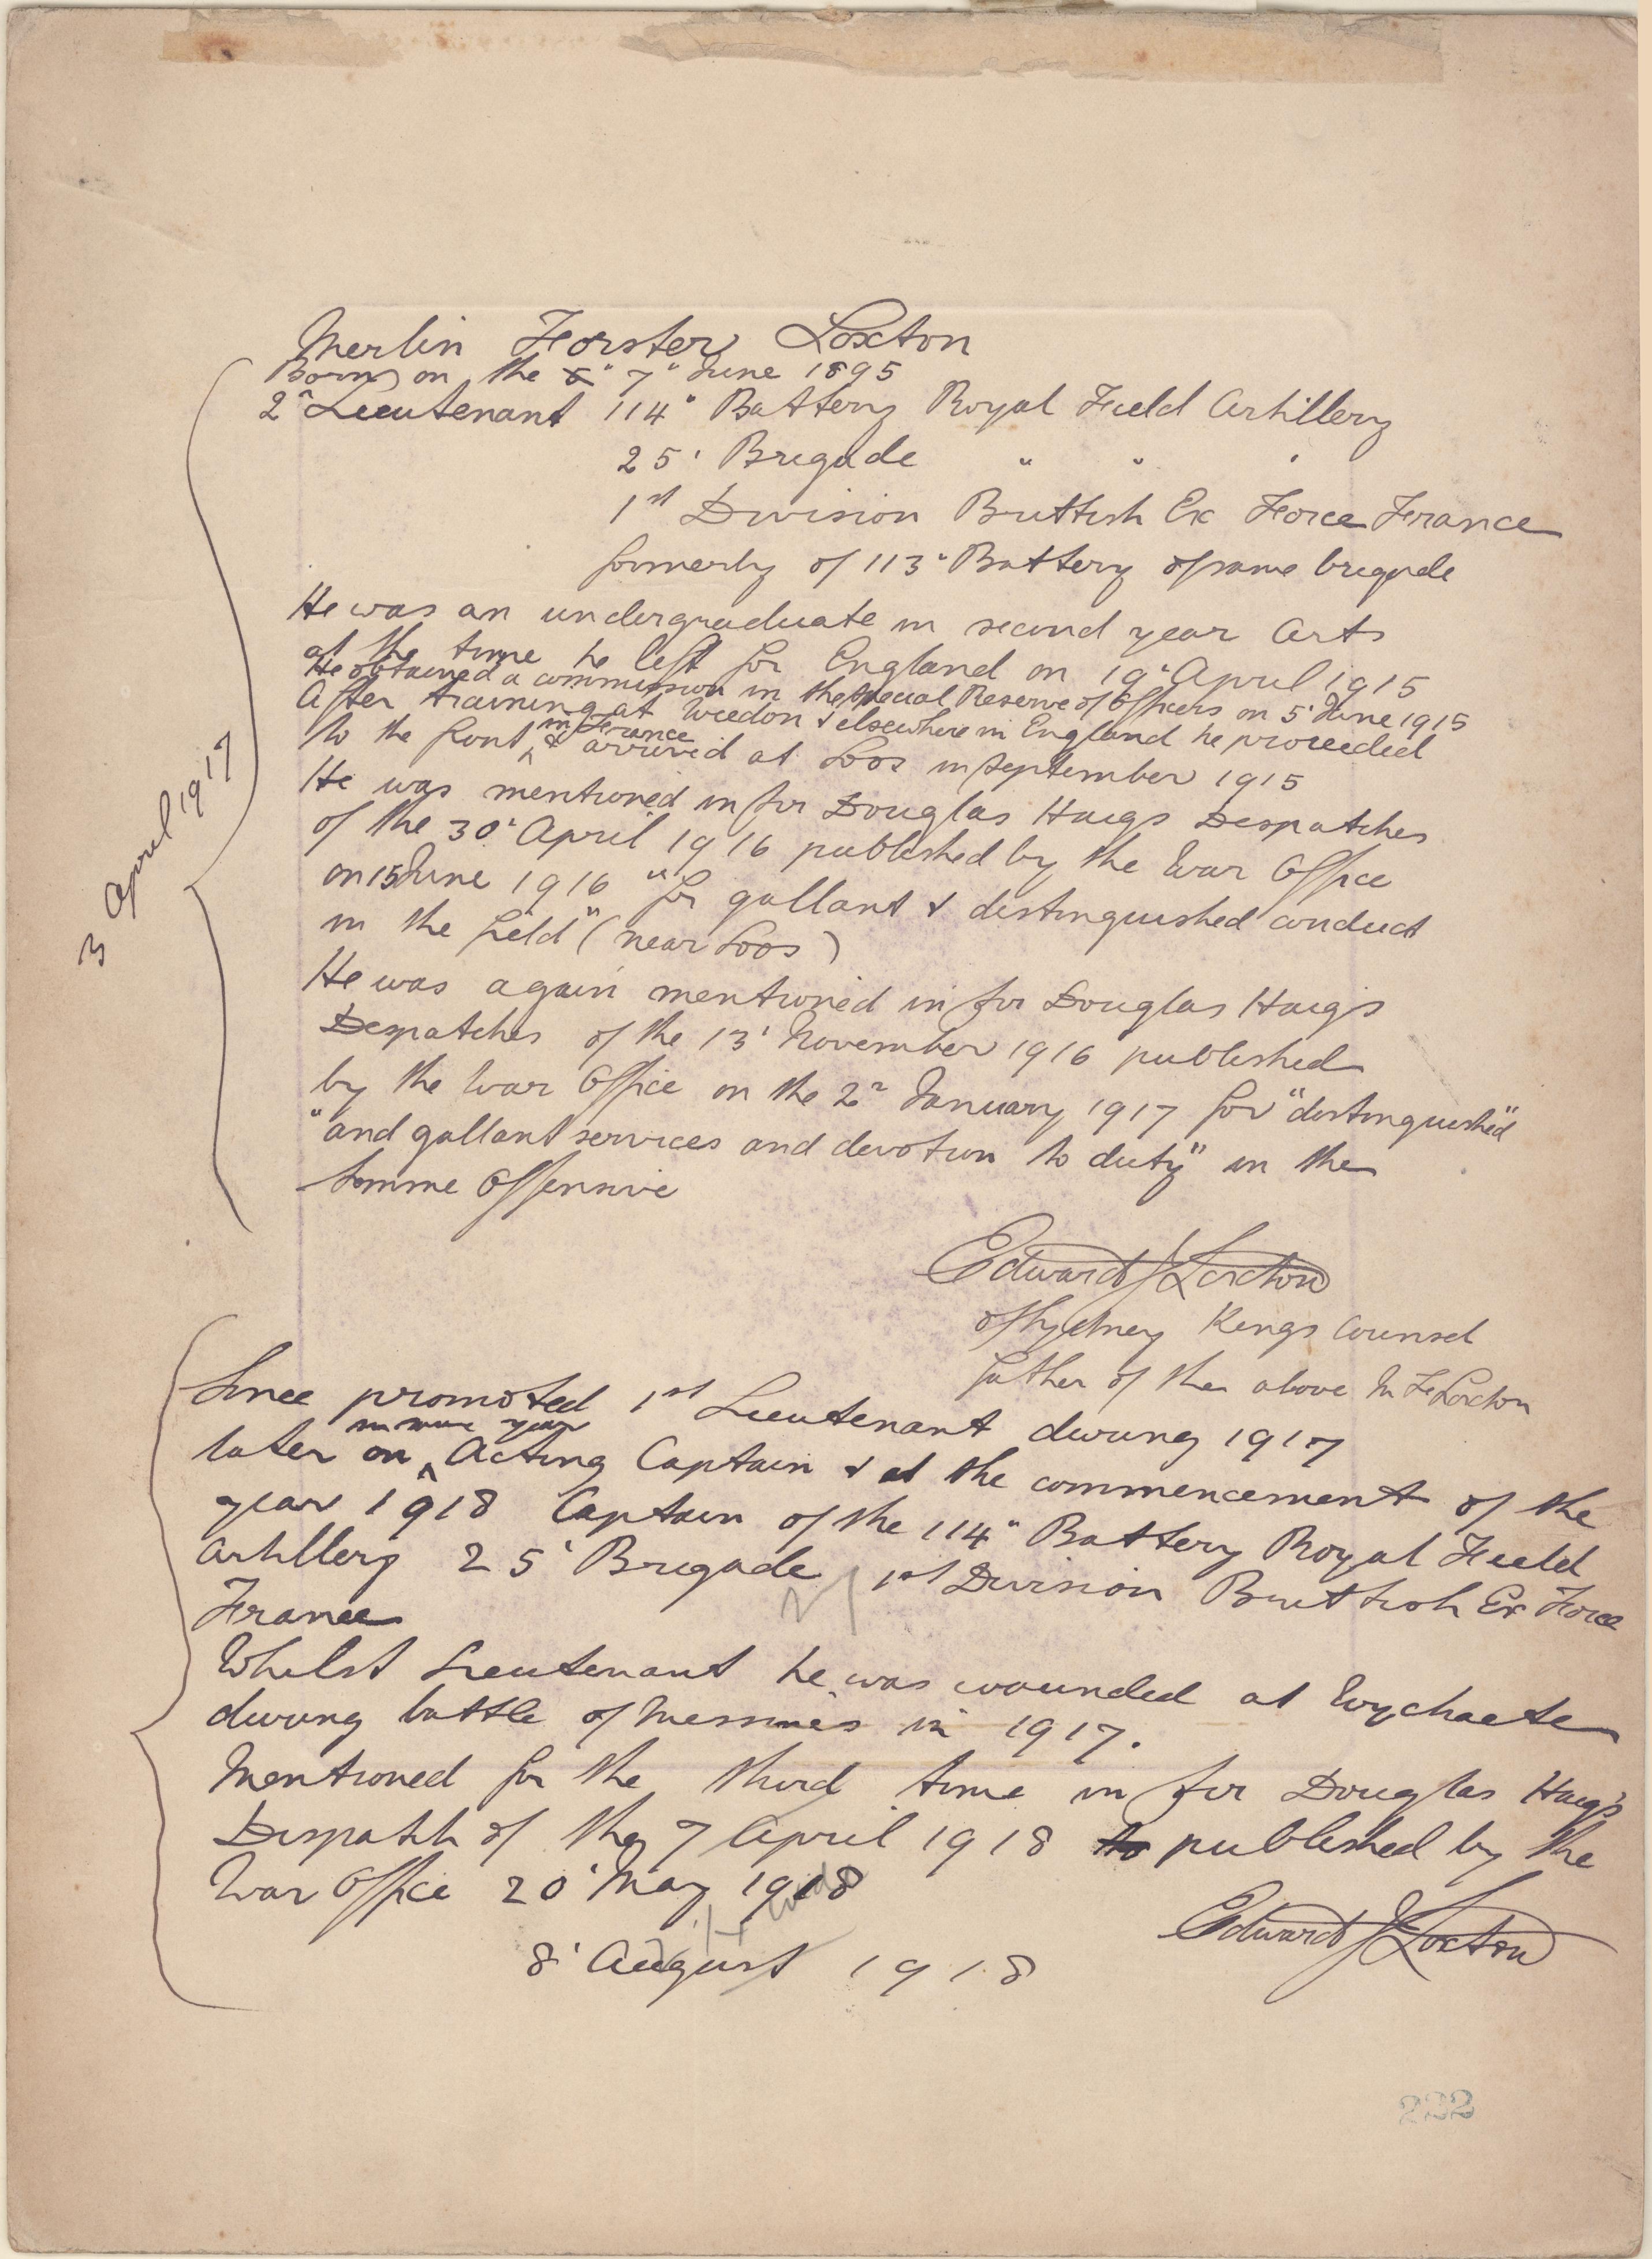 Merlin Forster Loxton
Born on the 7" June 1895
2n Lieutenant 114" Battery Royal Field Artillery
25' Brigade " " '
1st Division Brittish Ex Force France
formerly of 113" Battery of same brigade
He was an undergraduate in second year Arts
at the time he left for England on 19" April 1915
He obtained a commission in the special Reserve of Officers on 5' June 1915
After training at Weedon & elsewhere in England he proceeded
to the front in France & arrived at Loos in September 1915
He was mentioned in Sir Douglas Haigs Despatches
of the 30' April 1916 published by the War Office
on 15 June 1916 "for gallant & distinguished conduct
in the field" (near Loos)
He was again mentioned in Sir Douglas Haig's
Despatches of the 13' November 1916 published
by the War Office on the 2n January 1917 for "distinguished"
"and gallant services and devotion to duty" in the
Somme Offensive
3 April 1917
Edward J Loxton
of Sydney Kings Counsel
father of the above M F Loxton
Since promoted 1st Lieutenant during 1917
later on in same year Acting Captain & at the commencement of the
year 1918 Captain of the 114" Battery Royal Field
Artillery 25' Brigade 1st Division Brittish Ex Force
France
Whilst Lieutenant he was wounded at Wychaete
during battle of Messines in 1917.
Mentioned for the third time in Sir Douglas Haig's
Dispatch of the 7 April 1918 published by the
War Office 20' May 1918
Edward J Loxton
8' August 1918
222